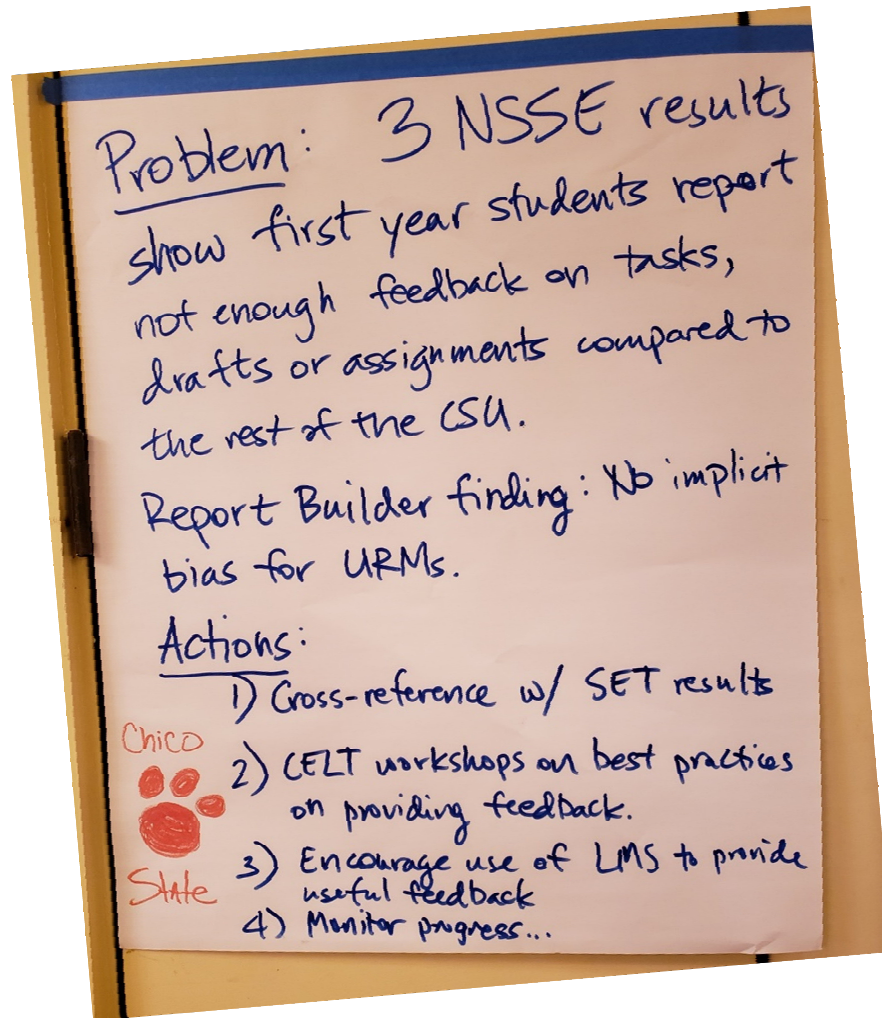 Problem: 3 NSSE results
show first year students report
not enough feedback on tasks,
drafts or assignments compared to
the rest of the CSU.
Report Builder finding: No implicit
bias for URMs.
Actions:
1) Cross-reference w/ SET results
2) CELT workshops on best practices
on providing feedback.
3) Encourage use of LMS to provide
useful feedback
4) Monitor progress...
Chico
State